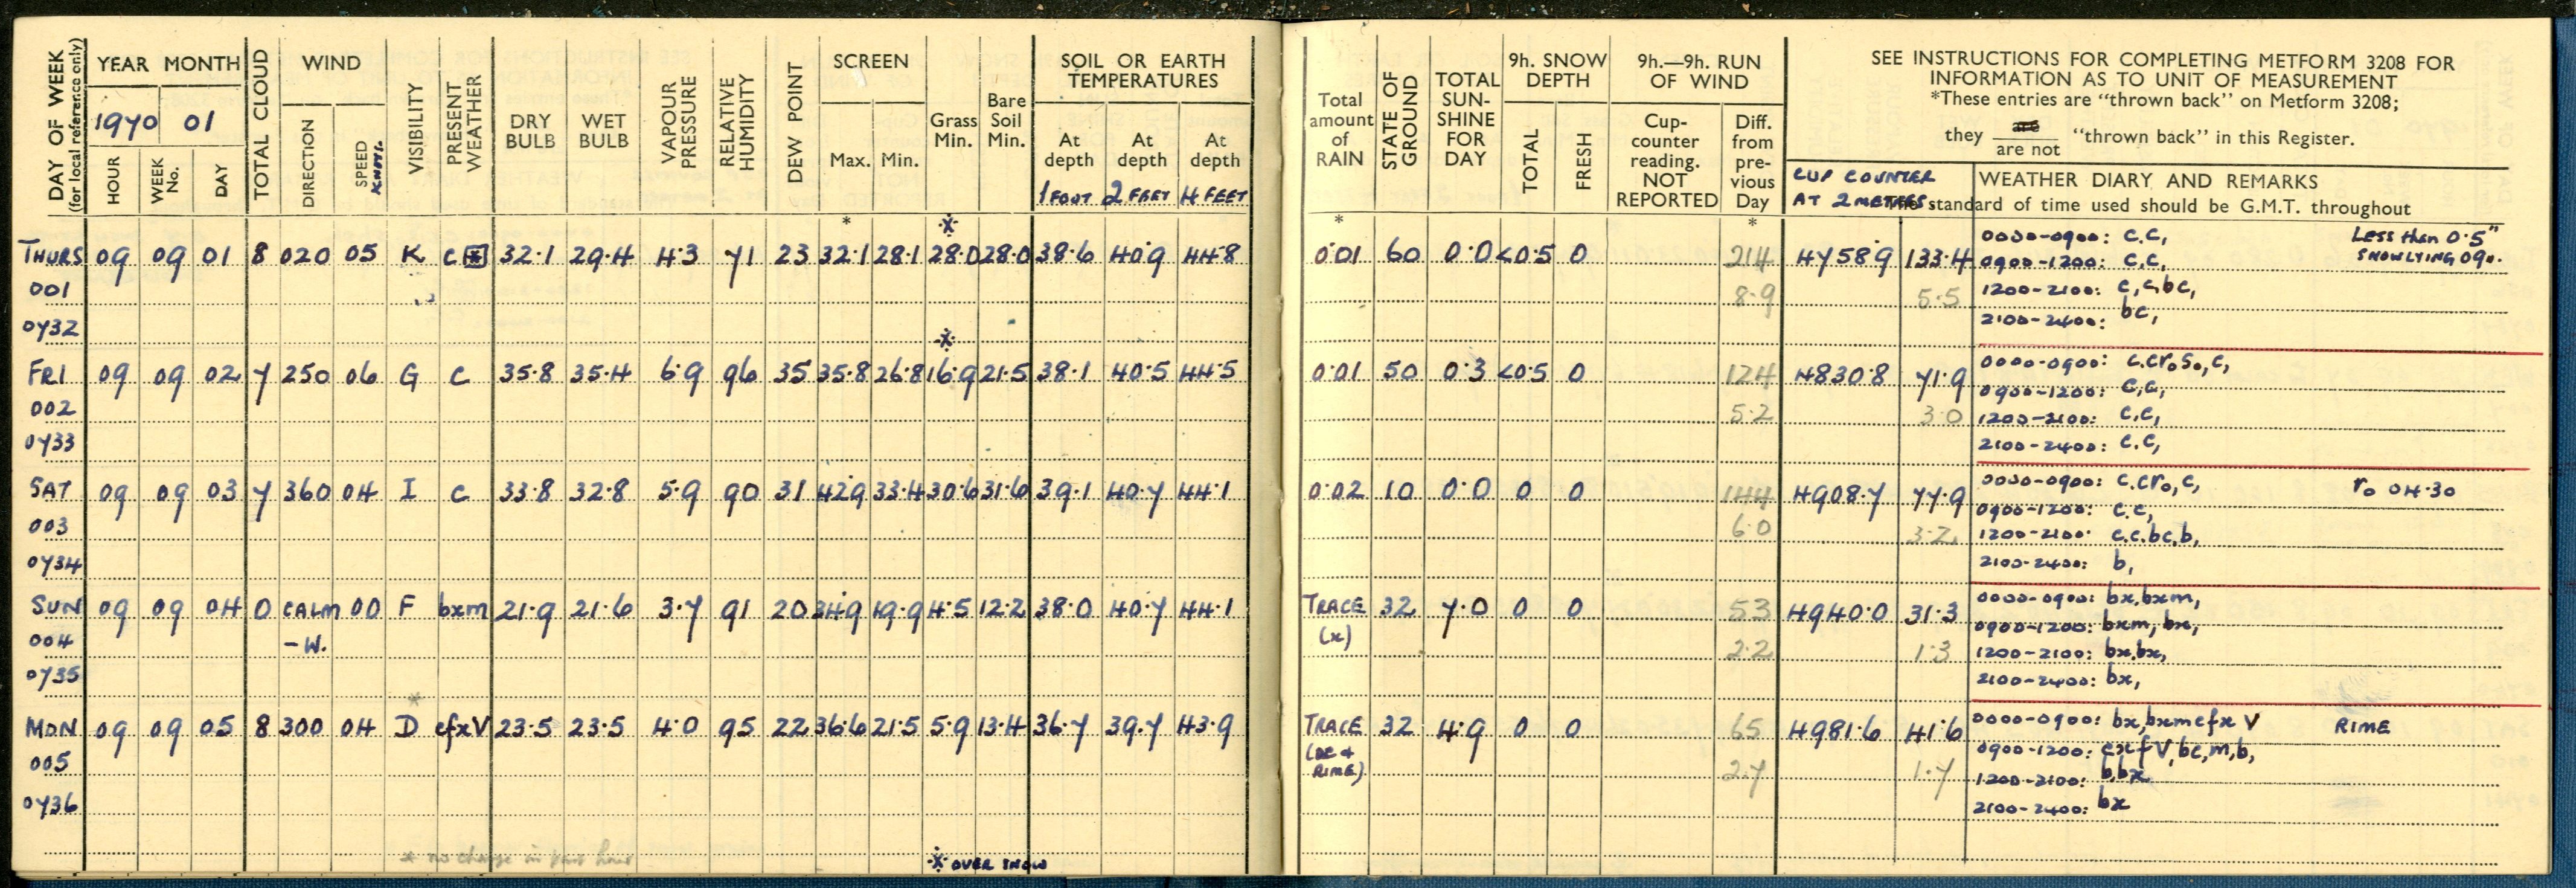 DAY OF WEEK
(for local reference only)
YEAR MONTH
1970 01
HOUR
WEEK No.
DAY
TOTAL CLOUD
WIND
DIRECTION
SPEED KNOTS.
VISIBILITY
PRESENT WEATHER
DRY BULB
WET BULB
VAPOUR PRESSURE
RELATIVE HUMIDITY
DEW POINT
SCREEN
Max. Min.
Grass Min.
Bare Soil Min.
SOIL OR EARTH TEMPERATURES
At depth At depth At depth
1 FOOT 2 FEET 4 FEET
Total amount of RAIN
STATE OF GROUND
TOTAL SUN-SHINE FOR DAY
9h. SNOW DEPTH
TOTAL
FRESH
9h.—9h. RUN OF WIND
Cup-counter reading. NOT REPORTED
Diff. from pre-vious Day
SEE INSTRUCTIONS FOR COMPLETING METFORM 3208 FOR
INFORMATION AS TO UNIT OF MEASUREMENT
*These entries are "thrown back" on Metform 3208;
they are / are not "thrown back" in this Register.
CUP COUNTER
AT 2 METRES.
WEATHER DIARY AND REMARKS
standard of time used should be G.M.T. throughout
* * * *
THURS 09 09 01 8 020 05 K c 32.1 29.4 4.3 71 23 32.1 28.1 28.0 28.0 38.6 40.9 44.8 0.01 60 0.0 <0.5 0 214 4758.9 133.4
001 8.9 5.5
0732
0000-0900: c.c,
0900-1200: c.c,
1200-2100: c,c,bc,
2100-2400: bc,
Less than 0.5"
SNOW LYING 09.
*
FRI 09 09 02 7 250 06 G c 35.8 35.4 6.9 96 35 35.8 26.8 16.9 21.5 38.1 40.5 44.5 0.01 50 0.3 <0.5 0 124 4830.8 71.9
002 5.2 3.0
0733
0000-0900: c.cr₀s₀,c,
0900-1200: c,c,
1200-2100: c.c,
2100-2400: c.c,
SAT 09 09 03 7 360 04 I c 33.8 32.8 5.9 90 31 42.9 33.4 30.6 31.6 39.1 40.7 44.1 0.02 10 0.0 0 0 144 4908.7 77.9
003 6.0 3.2
0734
0000-0900: c.cr₀,c,
0900-1200: c.c,
1200-2100: c.c.bc.b,
2100-2400: b,
r₀ 04.30
SUN 09 09 04 0 CALM 00 F bxm 21.9 21.6 3.7 91 20 34.9 19.9 4.5 12.2 38.0 40.7 44.1 TRACE 32 7.0 0 0 53 4940.0 31.3
004 -W. (x) 2.2 1.3
0735
0000-0900: bx.bxm,
0900-1200: bxm, bx,
1200-2100: bx.bx,
2100-2400: bx,
*
MON 09 09 05 8 300 04 D cfxV 23.5 23.5 4.0 95 22 36.6 21.5 5.9 13.4 36.7 39.7 43.9 TRACE 32 4.9 0 0 65 4981.6 41.6
005 RIME) 2.7 1.7
0736
0000-0900: bx,bxmcfx V
0900-1200: cxfV,bc,m,b,
1200-2100: b,bx
2100-2400: bx
RIME
* no change in hour
* OVER SNOW